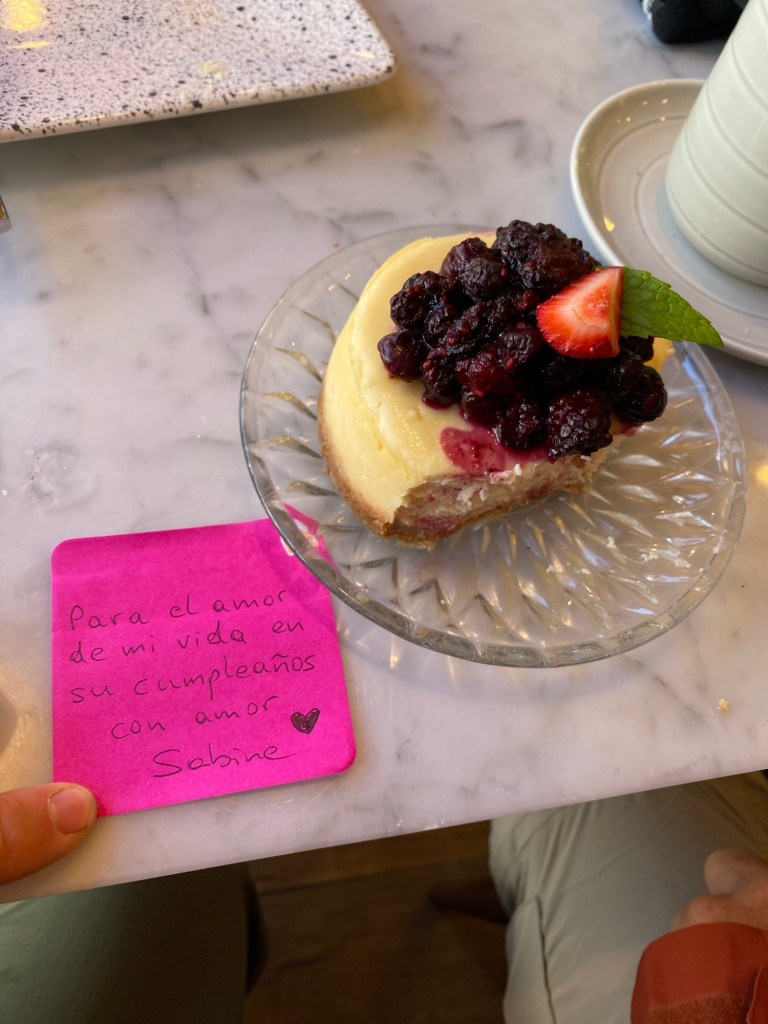 Para el amor
de mi vida en
su cumpleaños
con amor
Sabine